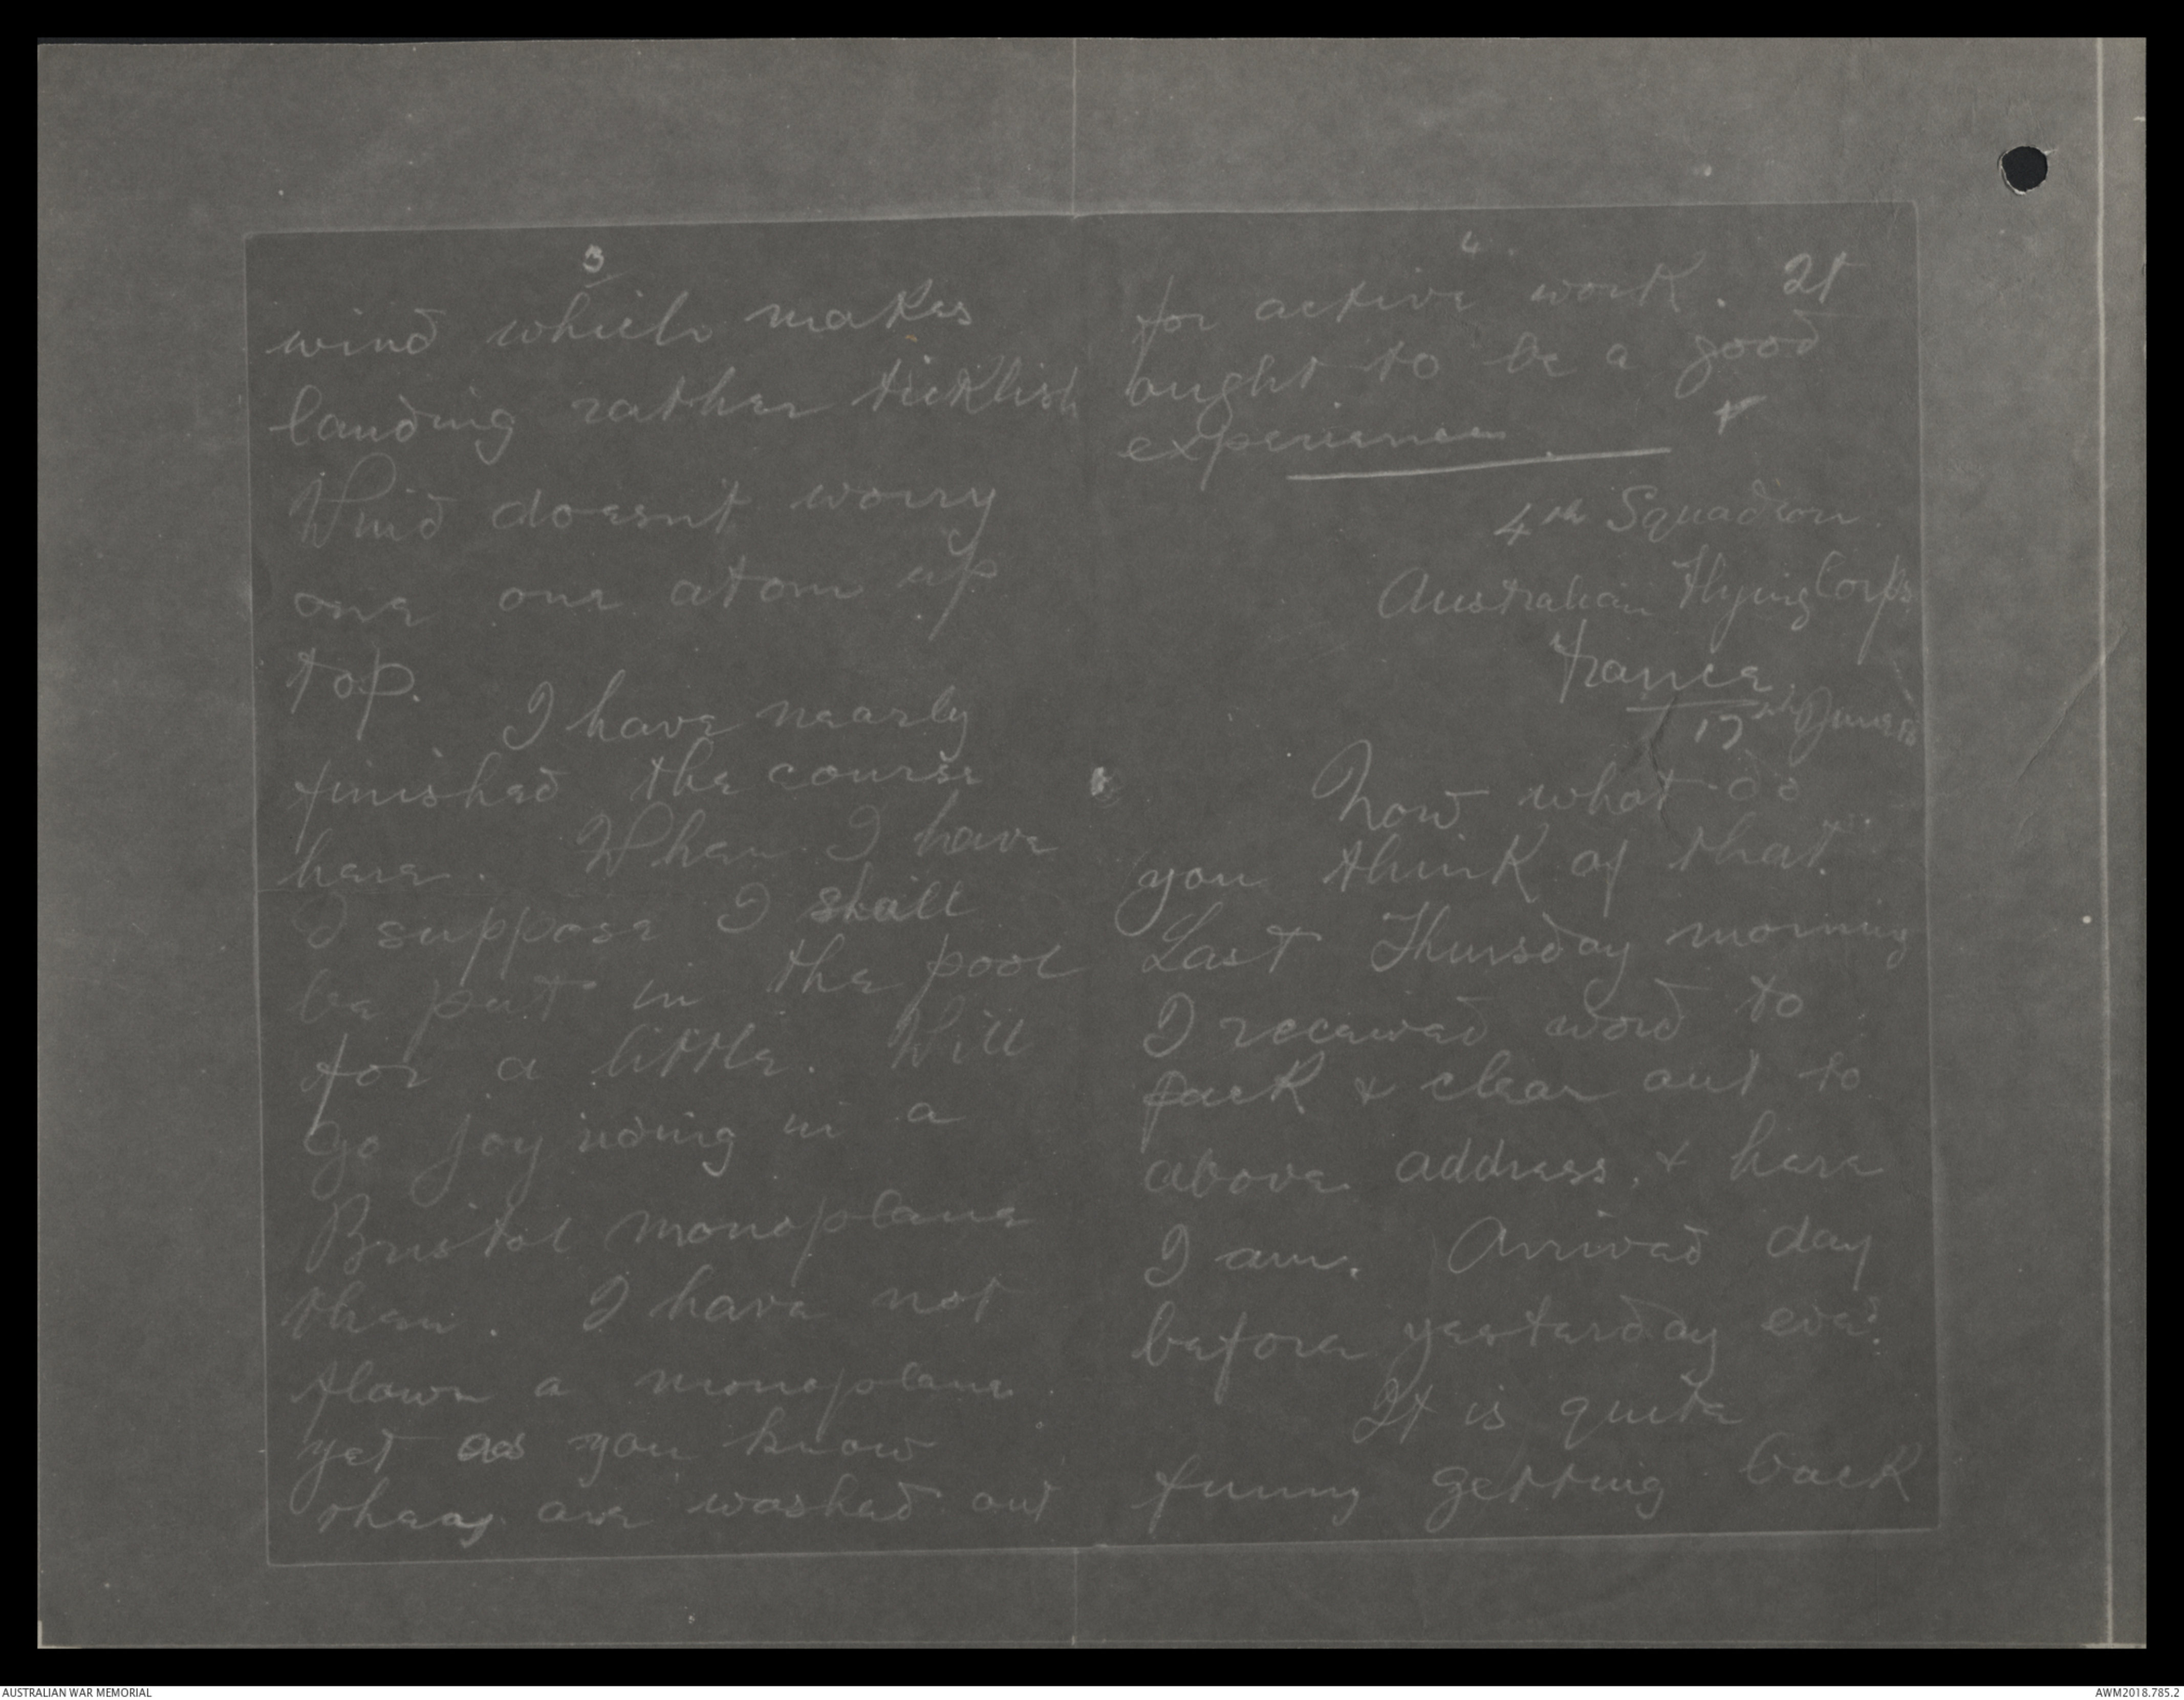 3
wind which makes
landing rather ticklish
Wind doesn't worry
one one atom up
top.
I have nearly
finished the course
here. When I have
I suppose I shall
be put in the pool
for a little. Will
go joy riding in a
Bristol monoplane
then. I have not
flown a monoplane
yet as you know
they are washed out
4.
for active work. It
ought to be a good
experience.
4th Squadron.
Australian Flying Corps
France.
17th June 18
Now what do
you think of that.
Last Thursday morning
I received word to
pack & clear out to
above address, & here
I am. Arrived day
before yesterday eve.
It is quite
funny getting back
AUSTRALIAN WAR MEMORIAL
AWM2018.785.2